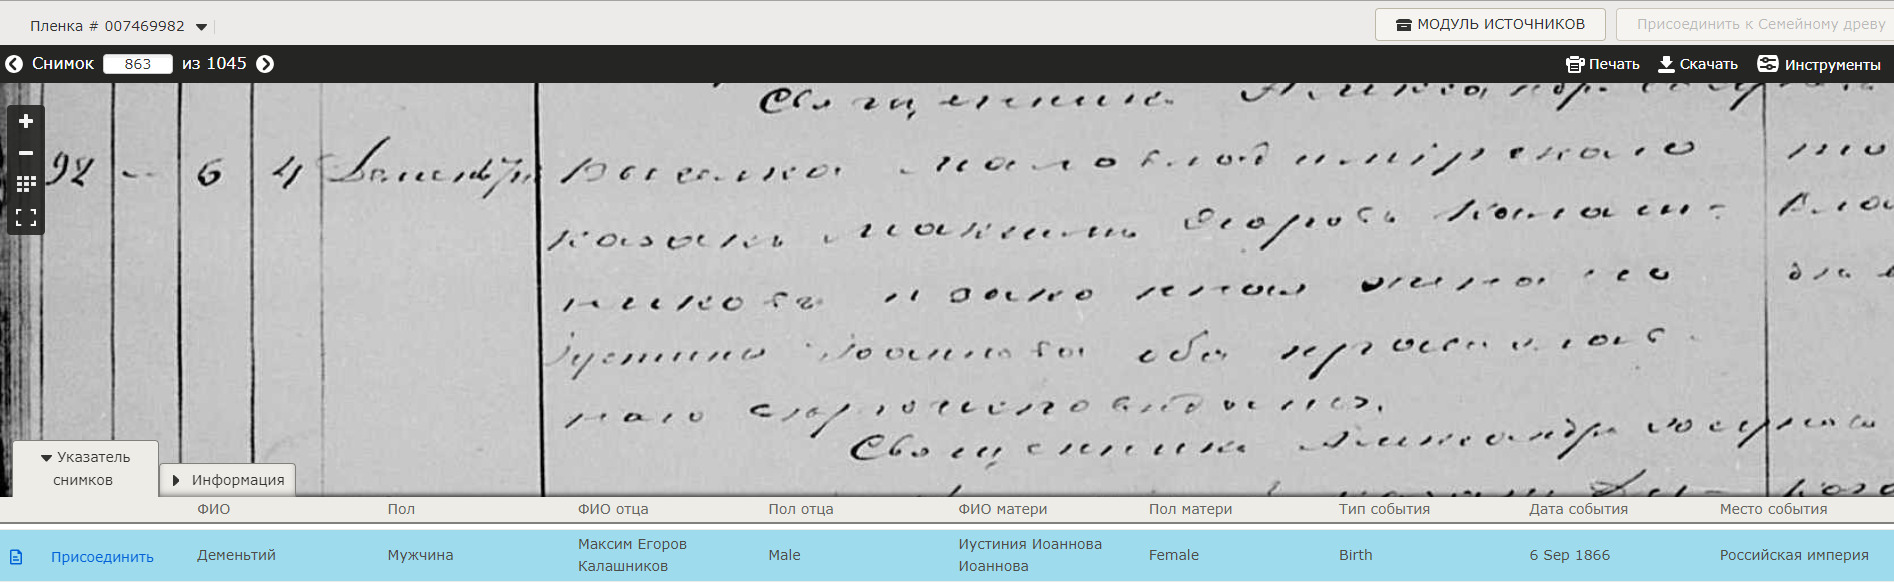 Пленка # 007469982
МОДУЛЬ ИСТОЧНИКОВ
Присоединить к Семейному древу
Снимок 863 из 1045
Печать
Скачать
Инструменты
Священникъ
92 6 4 выселка Маловладимірскаго
казакъ Максимъ Егоровъ Калаш-
никовъ и законная жена его
Іустина Іоаннова оба православ-
наго
Священникъ Александръ
Указатель снимков
Информация
ФИО Пол ФИО отца Пол отца ФИО матери Пол матери Тип события Дата события Место события
Присоединить Деменьтий Мужчина Максим Егоров Калашников Male Иустиния Иоаннова Иоаннова Female Birth 6 Sep 1866 Российская империя